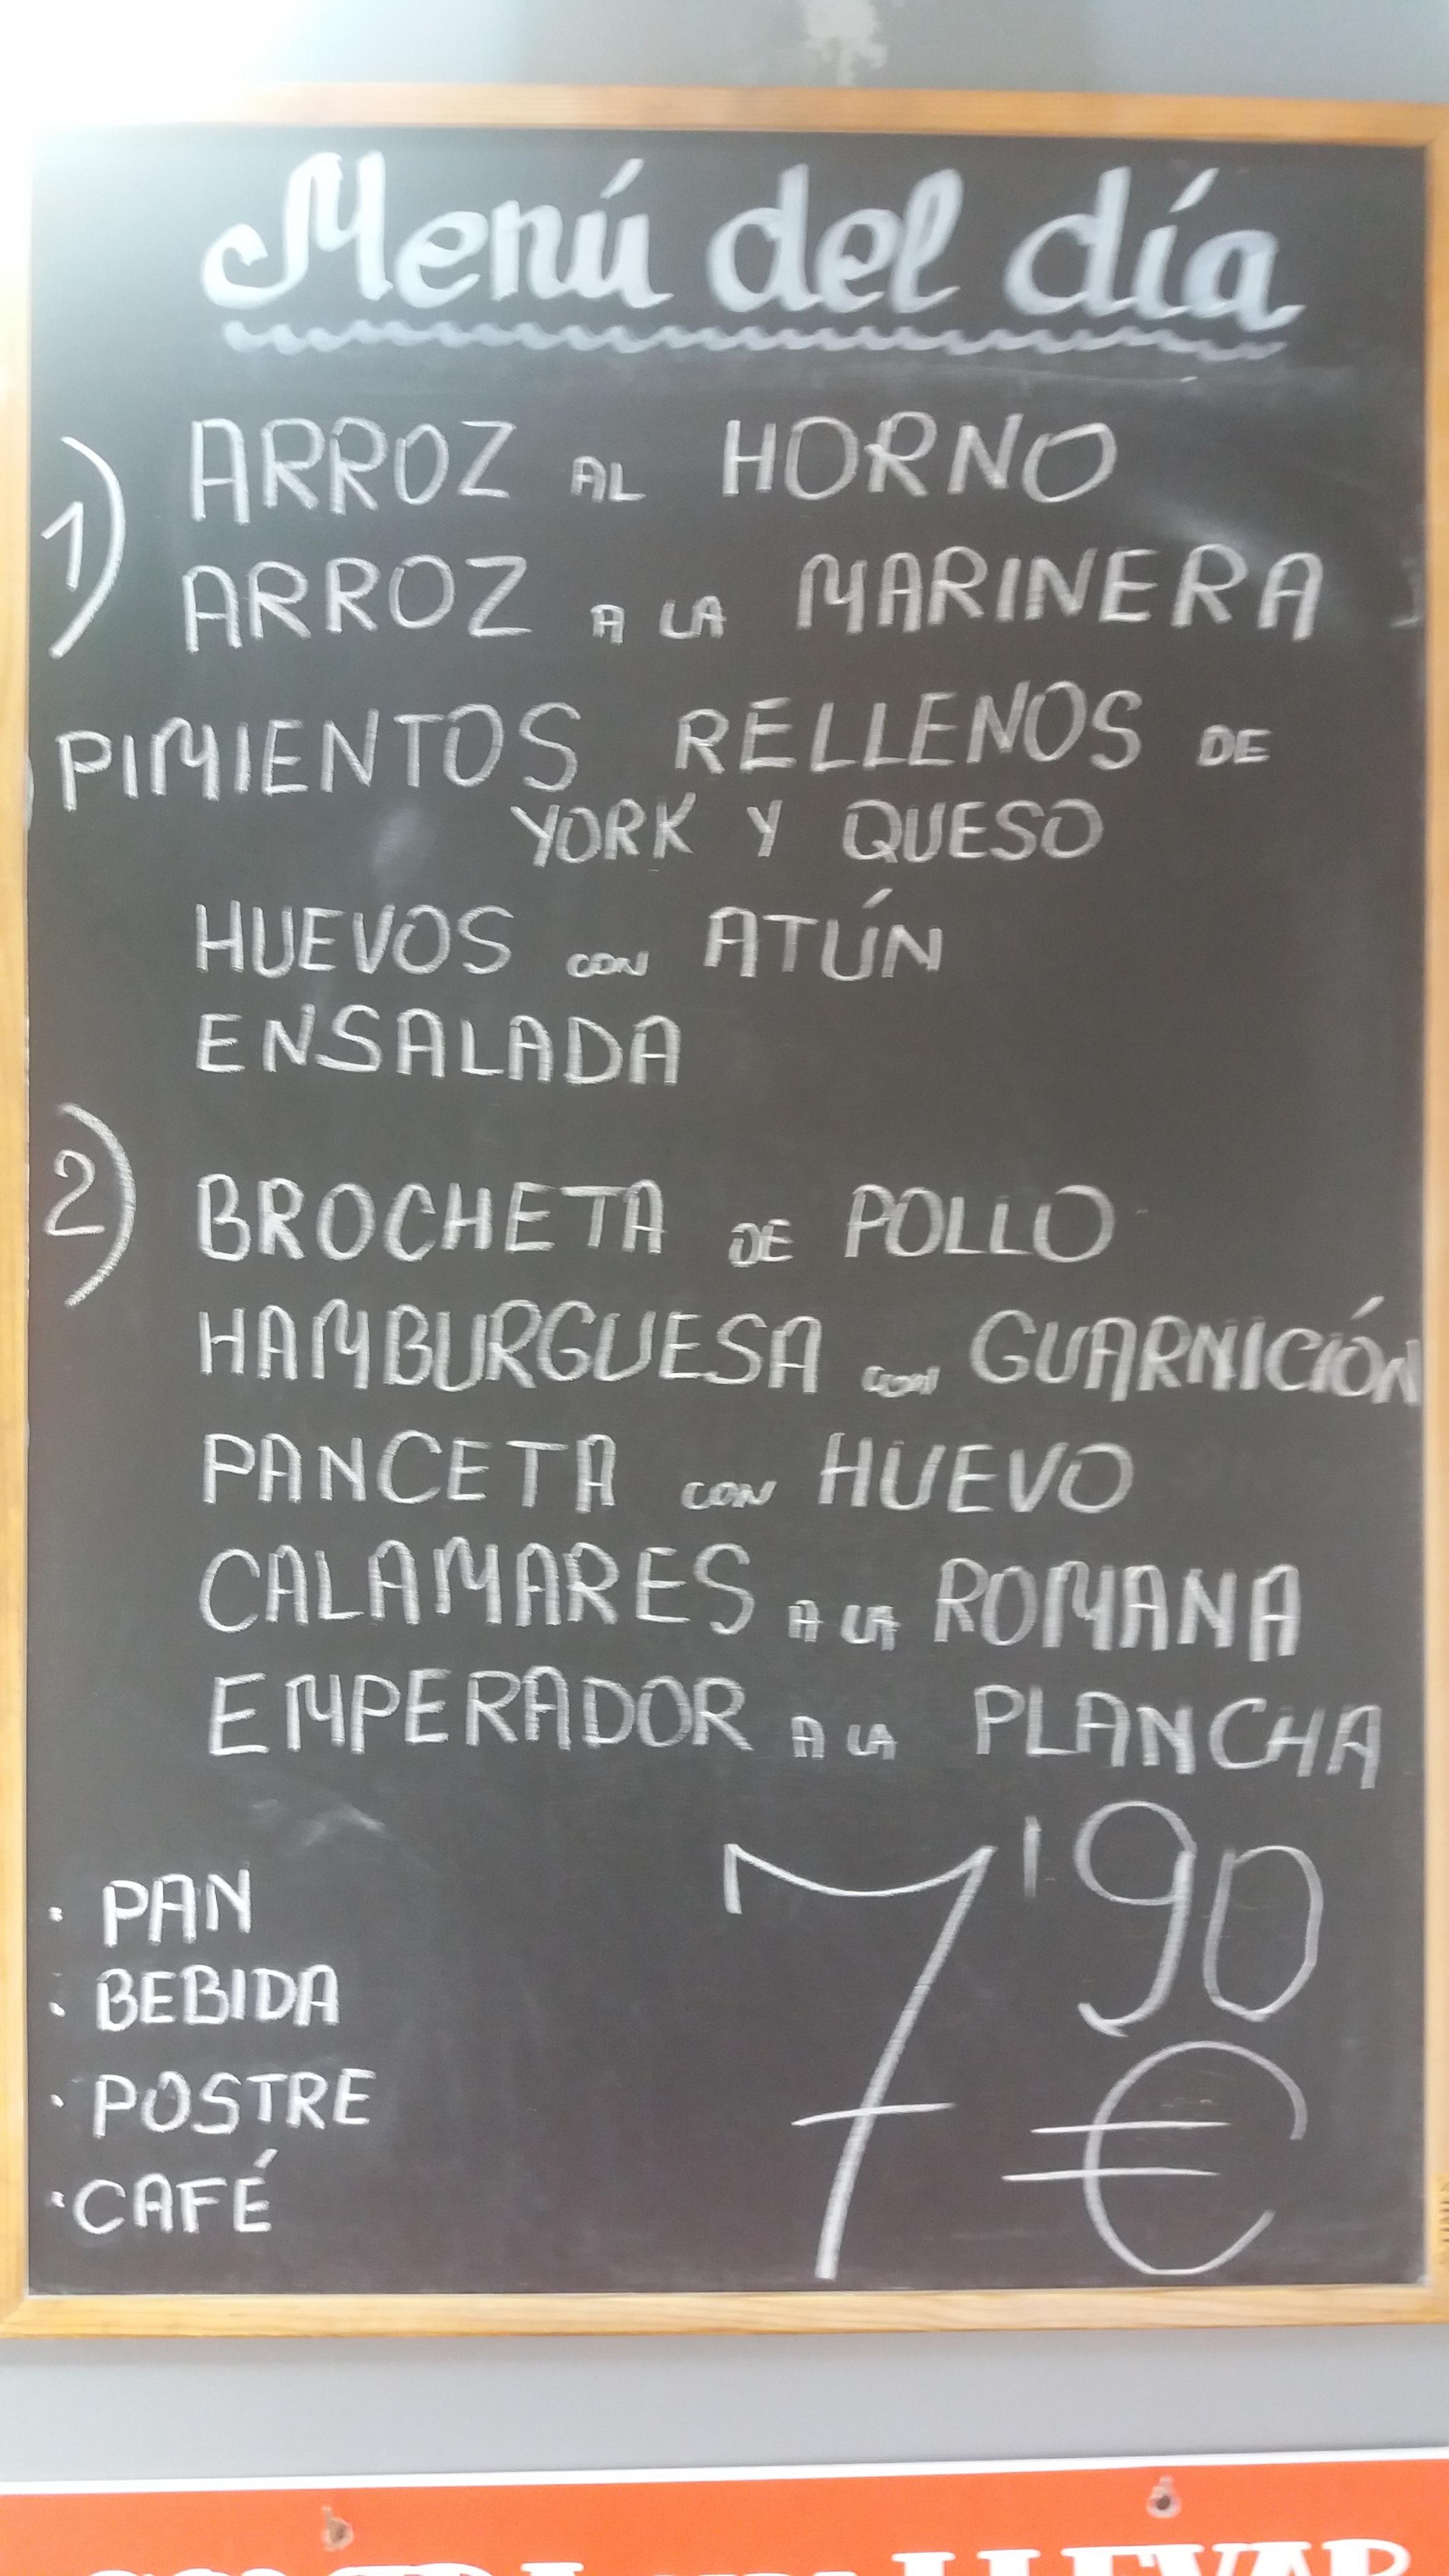 Menú del día
1) ARROZ AL HORNO
ARROZ A LA MARINERA
PIMIENTOS RELLENOS DE
YORK Y QUESO
HUEVOS CON ATÚN
ENSALADA
2) BROCHETA DE POLLO
HAMBURGUESA CON GUARNICIÓN
PANCETA CON HUEVO
CALAMARES A LA ROMANA
EMPERADOR A LA PLANCHA
· PAN
· BEBIDA
· POSTRE
· CAFÉ
7'90
€
LLEVAR